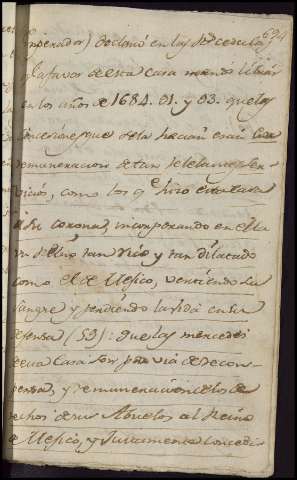 694
Emperador) declaró en las Rs. cedulas
a favor de esta Casa mandó librar
en los años de 1684. 91. y 93. que las
concesiones que de la hacian eran
remuneracion de tan relebantes ser-
vicios, como los qe. hizo esta Casa
á su corona, incorporando en ella
un Reino tan rico y tan dilatado
como el de Mexico, vertiendo su
sangre y perdiendo la vida en su
defensa (59): que las mercedes
de esta Casa son por via de recom-
pensa, y remuneracion de los de
rechos de sus Abuelos al Reino
de Mexico, y Justamente concedi-